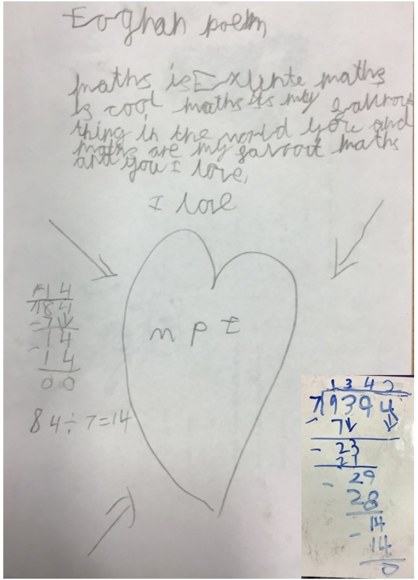 Eoghan poem
maths is Exlente maths
is cool maths is my
thing in the world you and
maths are my favrout maths
and you I love,
I love
m p t
14
7 84
-7↓
14
-14
00
84÷7=14
1342
7)9394
-7↓ ↓
-23
21
-29
28
-14
14
0